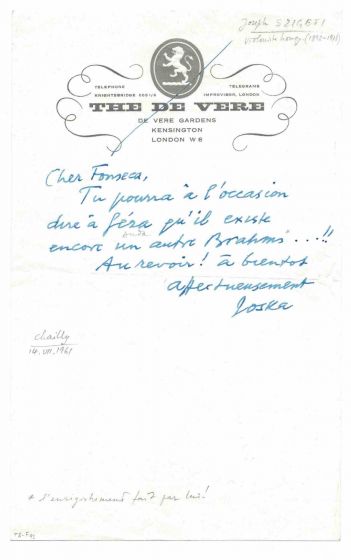 Joseph SZIGETI
violoniste hongr. (1892-1973)
TELEPHONE
KNIGHTSBRIDGE 0051/5
TELEGRAMS
IMPROVISOR, LONDON
THE DE VERE
DE VERE GARDENS
KENSINGTON
LONDON W8
Cher Fonseca,
Tu pourra à l'occasion
dire à Géza qu'il existe
Anda
encore un autre Brahms* ...!!
Au revoir! à bientot
affectueusement
Joska
Chailly
14.VII.1961
* l'enregistrement fait par lui!